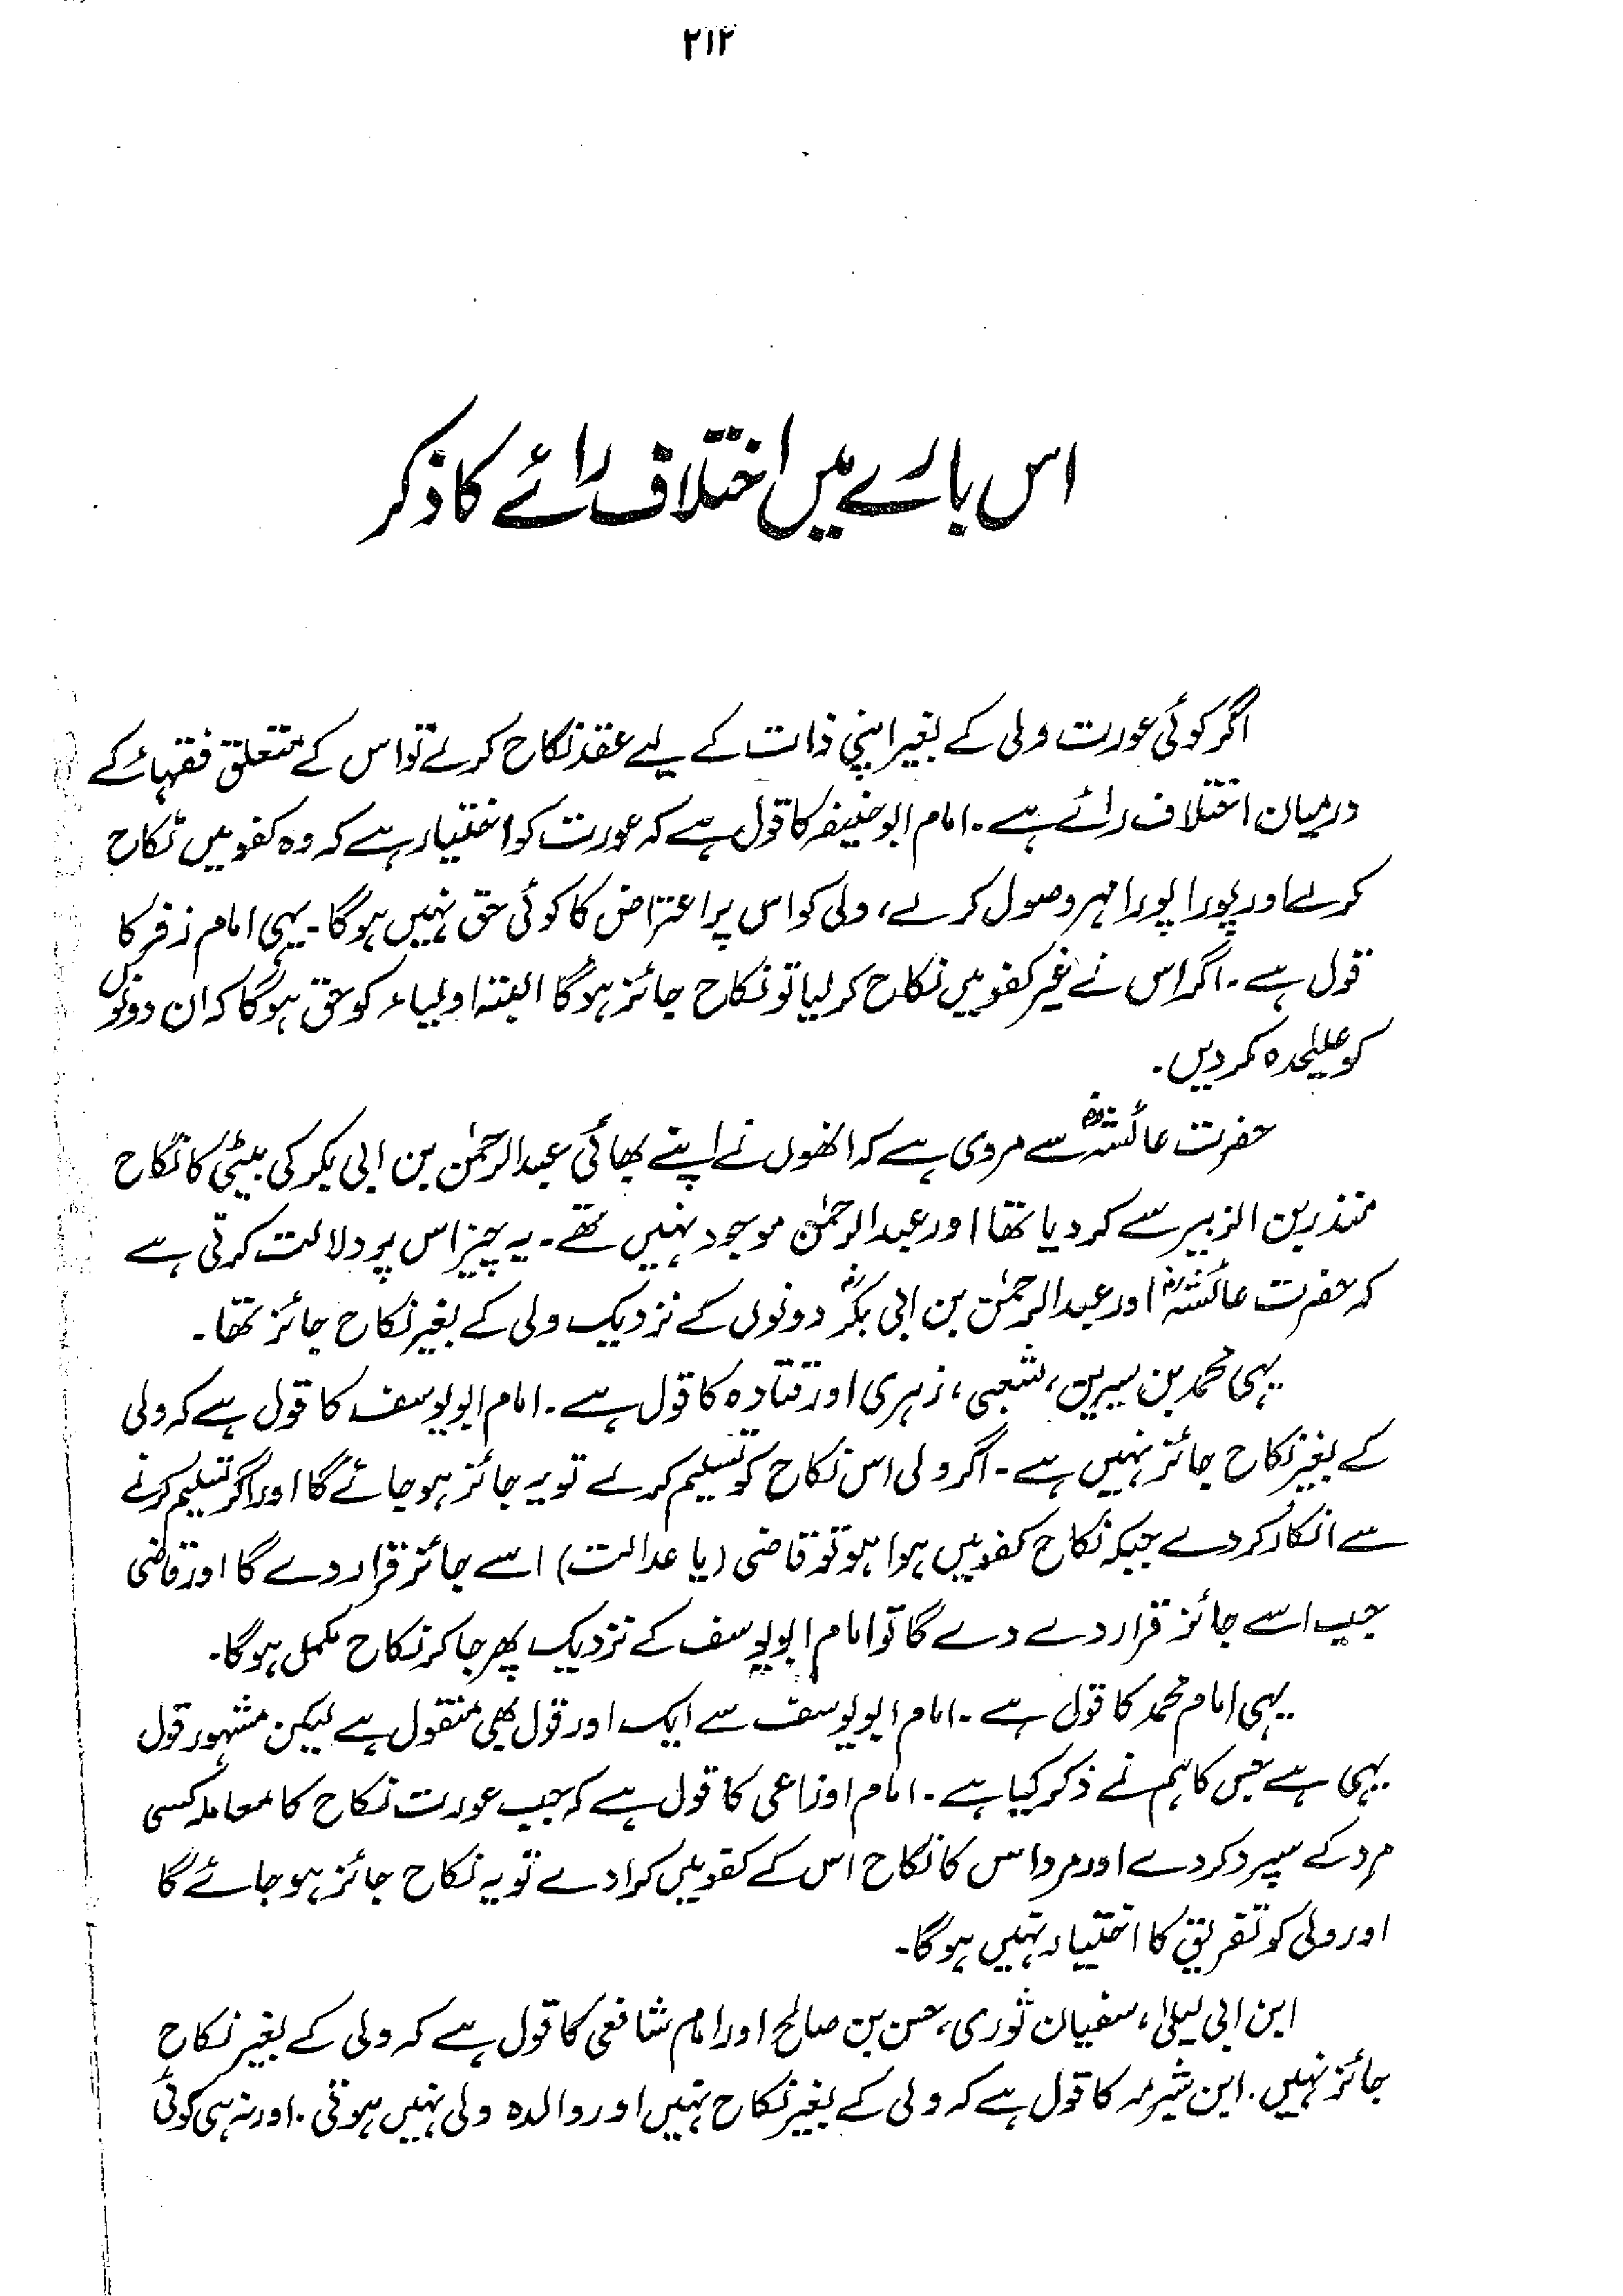 ۲۱۲
اس بارے میں اختلاف رائے کا ذکر
اگر کوئی عورت ولی کے بغیر اپنی ذات کے لیے عقد نکاح کرلے تو اس کے متعلق فقہاء کے
درمیان اختلاف رائے ہے۔ امام ابوحنیفہ کا قول ہے کہ عورت کو اختیار ہے کہ وہ کفو میں نکاح
کرلے اور پورا پورا مہر وصول کرلے، ولی کو اس پر اعتراض کا کوئی حق نہیں ہوگا۔ یہی امام زفر کا
قول ہے۔ اگر اس نے غیر کفو میں نکاح کر لیا تو نکاح جائز ہوگا البتہ اولیاء کو حق ہوگا کہ ان دونوں
کو علیٰحدہ کر دیں۔
حضرت عائشہؓ سے مروی ہے کہ انھوں نے اپنے بھائی عبدالرحمٰن بن ابی بکر کی بیٹی کا نکاح
منذر بن الزبیر سے کر دیا تھا اور عبدالرحمٰن موجود نہیں تھے۔ یہ چیز اس پر دلالت کرتی ہے
کہ حضرت عائشہؓ اور عبدالرحمٰن بن ابی بکرؓ دونوں کے نزدیک ولی کے بغیر نکاح جائز تھا۔
یہی محمد بن سیرین، شعبی، زہری اور قتادہ کا قول ہے۔ امام ابویوسف کا قول ہے کہ ولی
کے بغیر نکاح جائز نہیں ہے۔ اگر ولی اس نکاح کو تسلیم کرلے تو یہ جائز ہو جائے گا اور اگر تسلیم کرنے
سے انکار کردے جبکہ نکاح کفو میں ہوا ہو تو قاضی (یا عدالت) اسے جائز قرار دے گا اور قاضی
جب اسے جائز قرار دے دے گا تو امام ابویوسف کے نزدیک پھر جا کر نکاح مکمل ہوگا۔
یہی امام محمد کا قول ہے۔ امام ابویوسف سے ایک اور قول بھی منقول ہے لیکن مشہور قول
یہی ہے جس کا ہم نے ذکر کیا ہے۔ امام اوزاعی کا قول ہے کہ جب عورت نکاح کا معاملہ کسی
مرد کے سپرد کردے اور مرد اس کا نکاح اس کے کفو میں کرادے تو یہ نکاح جائز ہو جائے گا
اور ولی کو تفریق کا اختیار نہیں ہوگا۔
ابن ابی لیلیٰ، سفیان ثوری، حسن بن صالح اور امام شافعی کا قول ہے کہ ولی کے بغیر نکاح
جائز نہیں۔ ابن شبرمہ کا قول ہے کہ ولی کے بغیر نکاح نہیں اور والدہ ولی نہیں ہوتی۔ اور نہ ہی کوئی